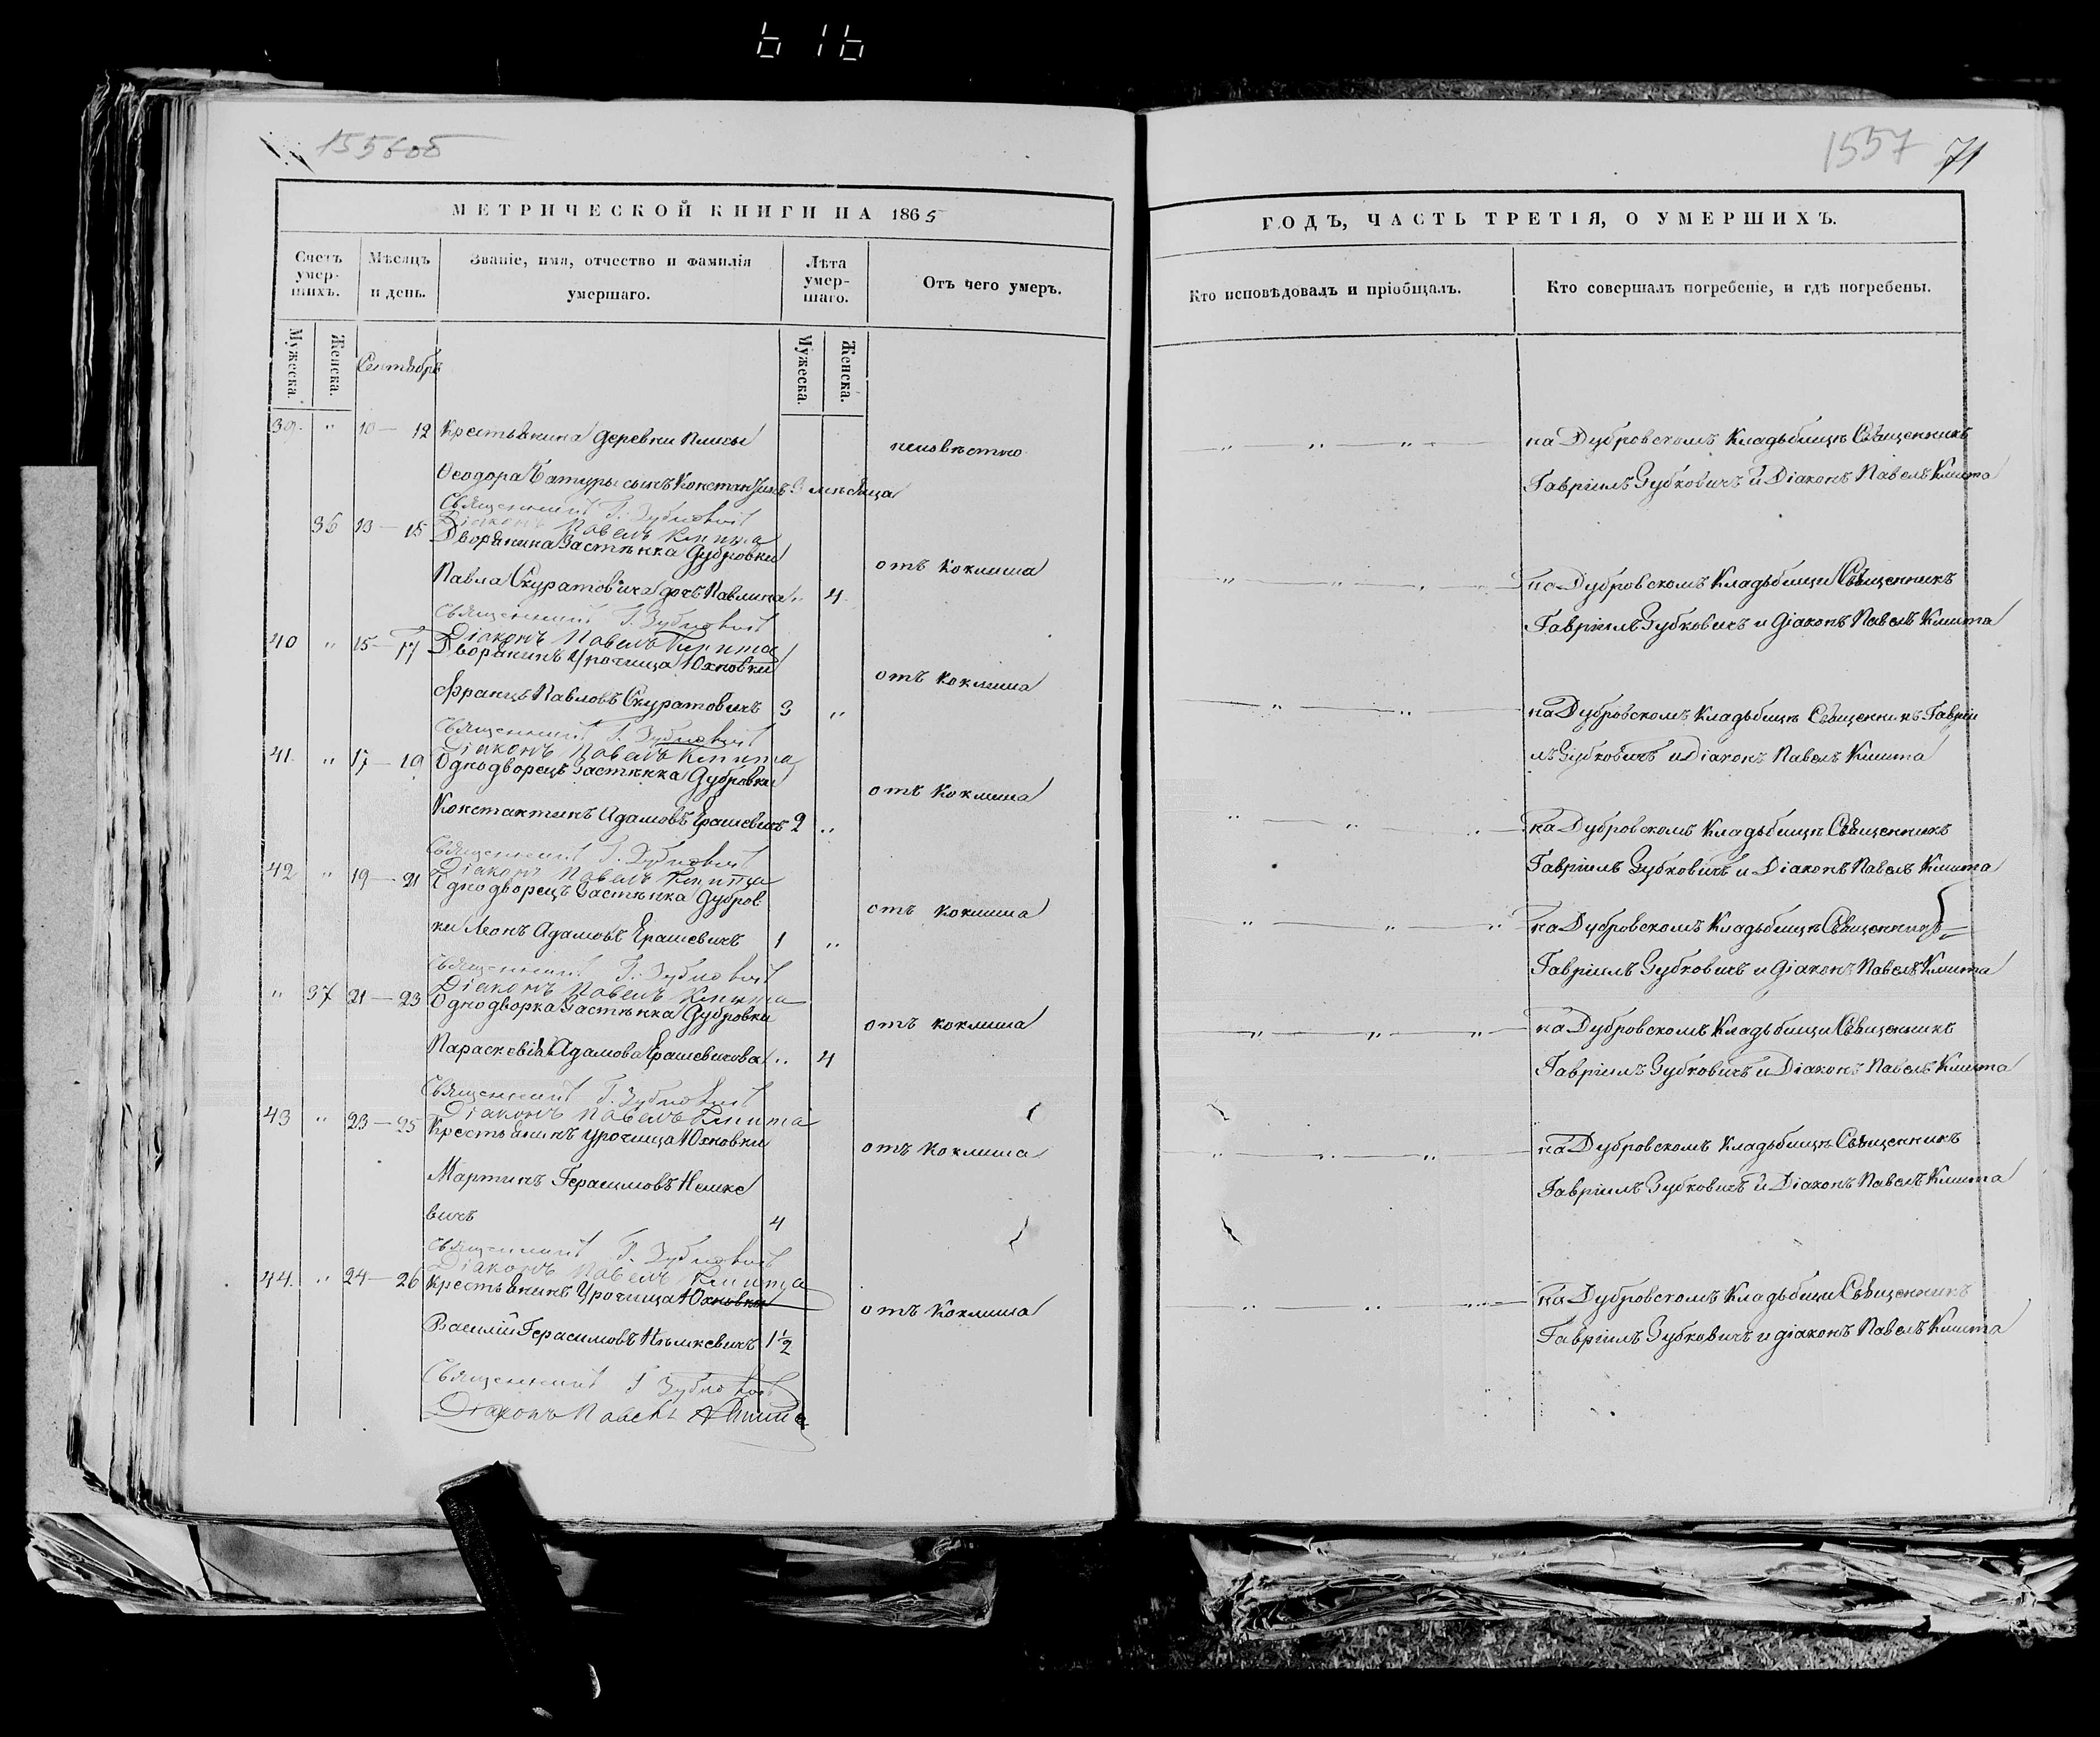 616
1556об
1557 71
МЕТРИЧЕСКОЙ КНИГИ НА 1865
ГОДЪ, ЧАСТЬ ТРЕТІЯ, О УМЕРШИХЪ.
Счетъ умер-шихъ.
Мѣсяцъ и день.
Званіе, имя, отчество и фамилія умершаго.
Лѣта умер-шаго.
Отъ чего умеръ.
Кто исповѣдовалъ и пріобщалъ.
Кто совершалъ погребеніе, и гдѣ погребены.
Мужеска. Женска.
Сентябрь
Мужеска. Женска.
39. " 10 — 12 Крестьянина деревни Плисы
неизвѣстно
" " "
на Дубровскомъ Кладьбищѣ Священникъ
Ѳеодора Батуры сынъ Константинъ 3 мѣсяца
Гавріилъ Зубковичъ и Діаконъ Павелъ Клишта
Священникъ Г. Зубковичъ
Діаконъ Павелъ Клишта
36 13 — 15 Дворянина Застѣнка Дубровки
отъ коклиша
" " "
на Дубровскомъ Кладьбищи Священникъ
Павла Скуратовича дочь Павлина " 4
Гавріилъ Зубковичъ и діаконъ Павелъ Клишта
Священникъ Г. Зубковичъ
Діаконъ Павелъ Клишта
40 " 15 — 17 Дворянинъ Урочища Юхновки
отъ коклиша
" "
на Дубровскомъ Кладьбищѣ Священникъ Гаврiи
Францъ Павловъ Скуратовичъ 3 "
лъ Зубковичъ и Діаконъ Павелъ Клишта
Священникъ Г. Зубковичъ
Діаконъ Павелъ Клишта
41. " 17 — 19 Однодворецъ Застѣнка Дубровки
отъ Коклиша
" " "
на Дубровскомъ Кладьбищѣ Священникъ
Константинъ Адамовъ Ерашевичъ 2 "
Гавріилъ Зубковичъ и Діаконъ Павелъ Клишта
Священникъ Г. Зубковичъ
Діаконъ Павелъ Клишта
42 " 19 — 21 Однодворецъ Застѣнка Дубров
отъ коклиша
" " "
на Дубровскомъ Кладьбищѣ Священникъ
ки Леонъ Адамовъ Ерашевичъ 1 "
Гавріилъ Зубковичъ и діаконъ Павелъ Клишта
Священникъ Г. Зубковичъ
Діаконъ Павелъ Клишта
" 37 21 — 23 Однодворка Застѣнка Дубровки
отъ коклиша
" " "
на Дубровскомъ Кладьбищи Священникъ
Параскевія Адамова Ерашевичова " 4
Гавріилъ Зубковичъ и Діаконъ Павелъ Клишта
Священникъ Г. Зубковичъ
Діаконъ Павелъ Клишта
43 " 23 — 25 Крестьянинъ урочища Юхновки
отъ Коклиша
" " "
на Дубровскомъ Кладьбищѣ Священникъ
Мартинъ Герасимовъ Немке
Гавріилъ Зубковичъ и Діаконъ Павелъ Клишта
вичъ 4
Священникъ Г. Зубковичъ
Діаконъ Павелъ Клишта
44. " 24 — 26 Крестьянинъ Урочища Юхновки
отъ Коклиша
" " "
на Дубровскомъ Кладьбищи Священникъ
Василій Герасимовъ Нѣмкевичъ 1 1/2
Гавріилъ Зубковичъ и діаконъ Павелъ Клишта
Священникъ Г Зубковичъ
Діаконъ Павелъ Клишта